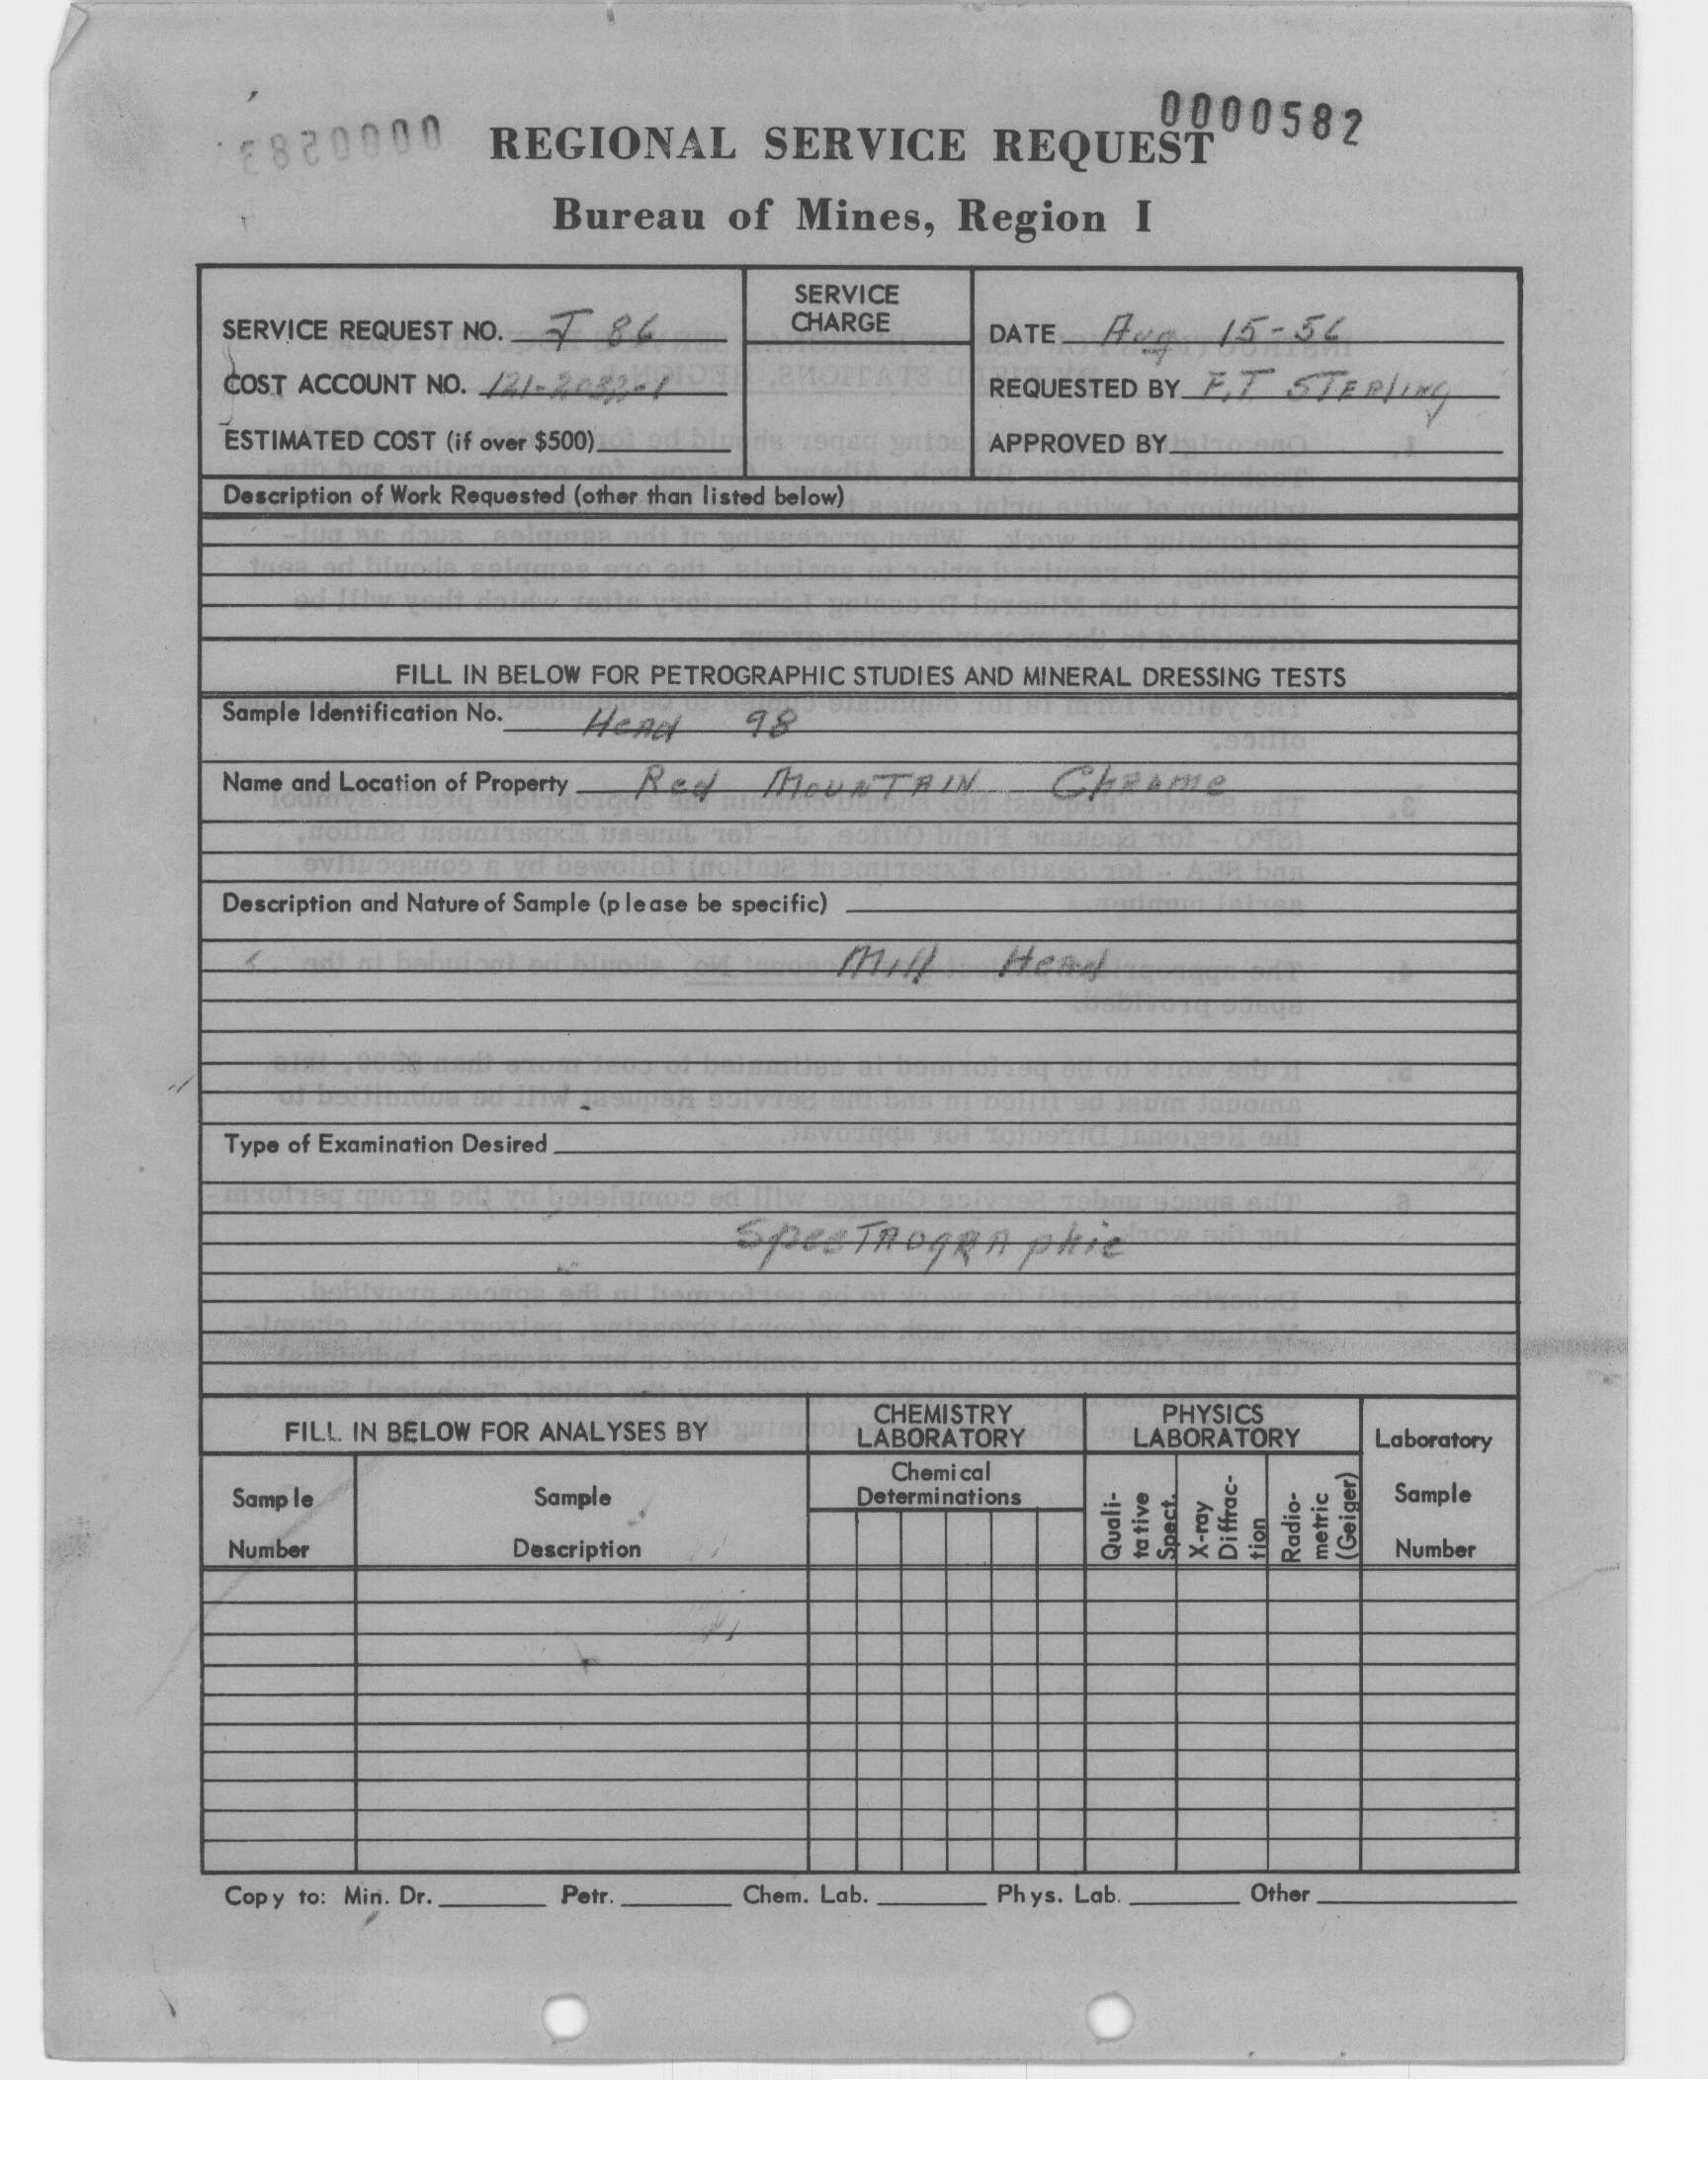 0000582
REGIONAL SERVICE REQUEST
Bureau of Mines, Region I
SERVICE REQUEST NO. J 86
COST ACCOUNT NO.
ESTIMATED COST (if over $500)
SERVICE
CHARGE
DATE Aug 15-56
REQUESTED BY F.T STERling
APPROVED BY
Description of Work Requested (other than listed below)
FILL IN BELOW FOR PETROGRAPHIC STUDIES AND MINERAL DRESSING TESTS
Sample Identification No. Head 98
Name and Location of Property Red MOUNTAIN Chrome
Description and Nature of Sample (please be specific)
Mill Head
Type of Examination Desired
Spectrographic
FILL IN BELOW FOR ANALYSES BY
CHEMISTRY
LABORATORY
PHYSICS
LABORATORY
Laboratory
Sample
Number
Sample
Number
Sample
Description
Chemical
Determinations
Quali-
tative
Spect.
X-ray
Diffrac-
tion
Radio-
metric
(Geiger)
Copy to: Min. Dr. Petr. Chem. Lab. Phys. Lab. Other